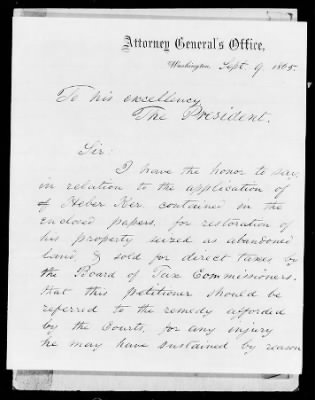 Attorney General's Office,
Washington Sept. 9. 1865.
To his excellency
The President.
Sir:
I have the honor to say,
in relation to the application of
of Heber Ker, contained in the
enclosed papers, for restoration of
his property seized as abandoned
land, & sold for direct taxes by
the Board of Tax Commissioners,
that this petitioner should be
referred to the remedy afforded
by the Courts, for any injury
he may have sustained by reason